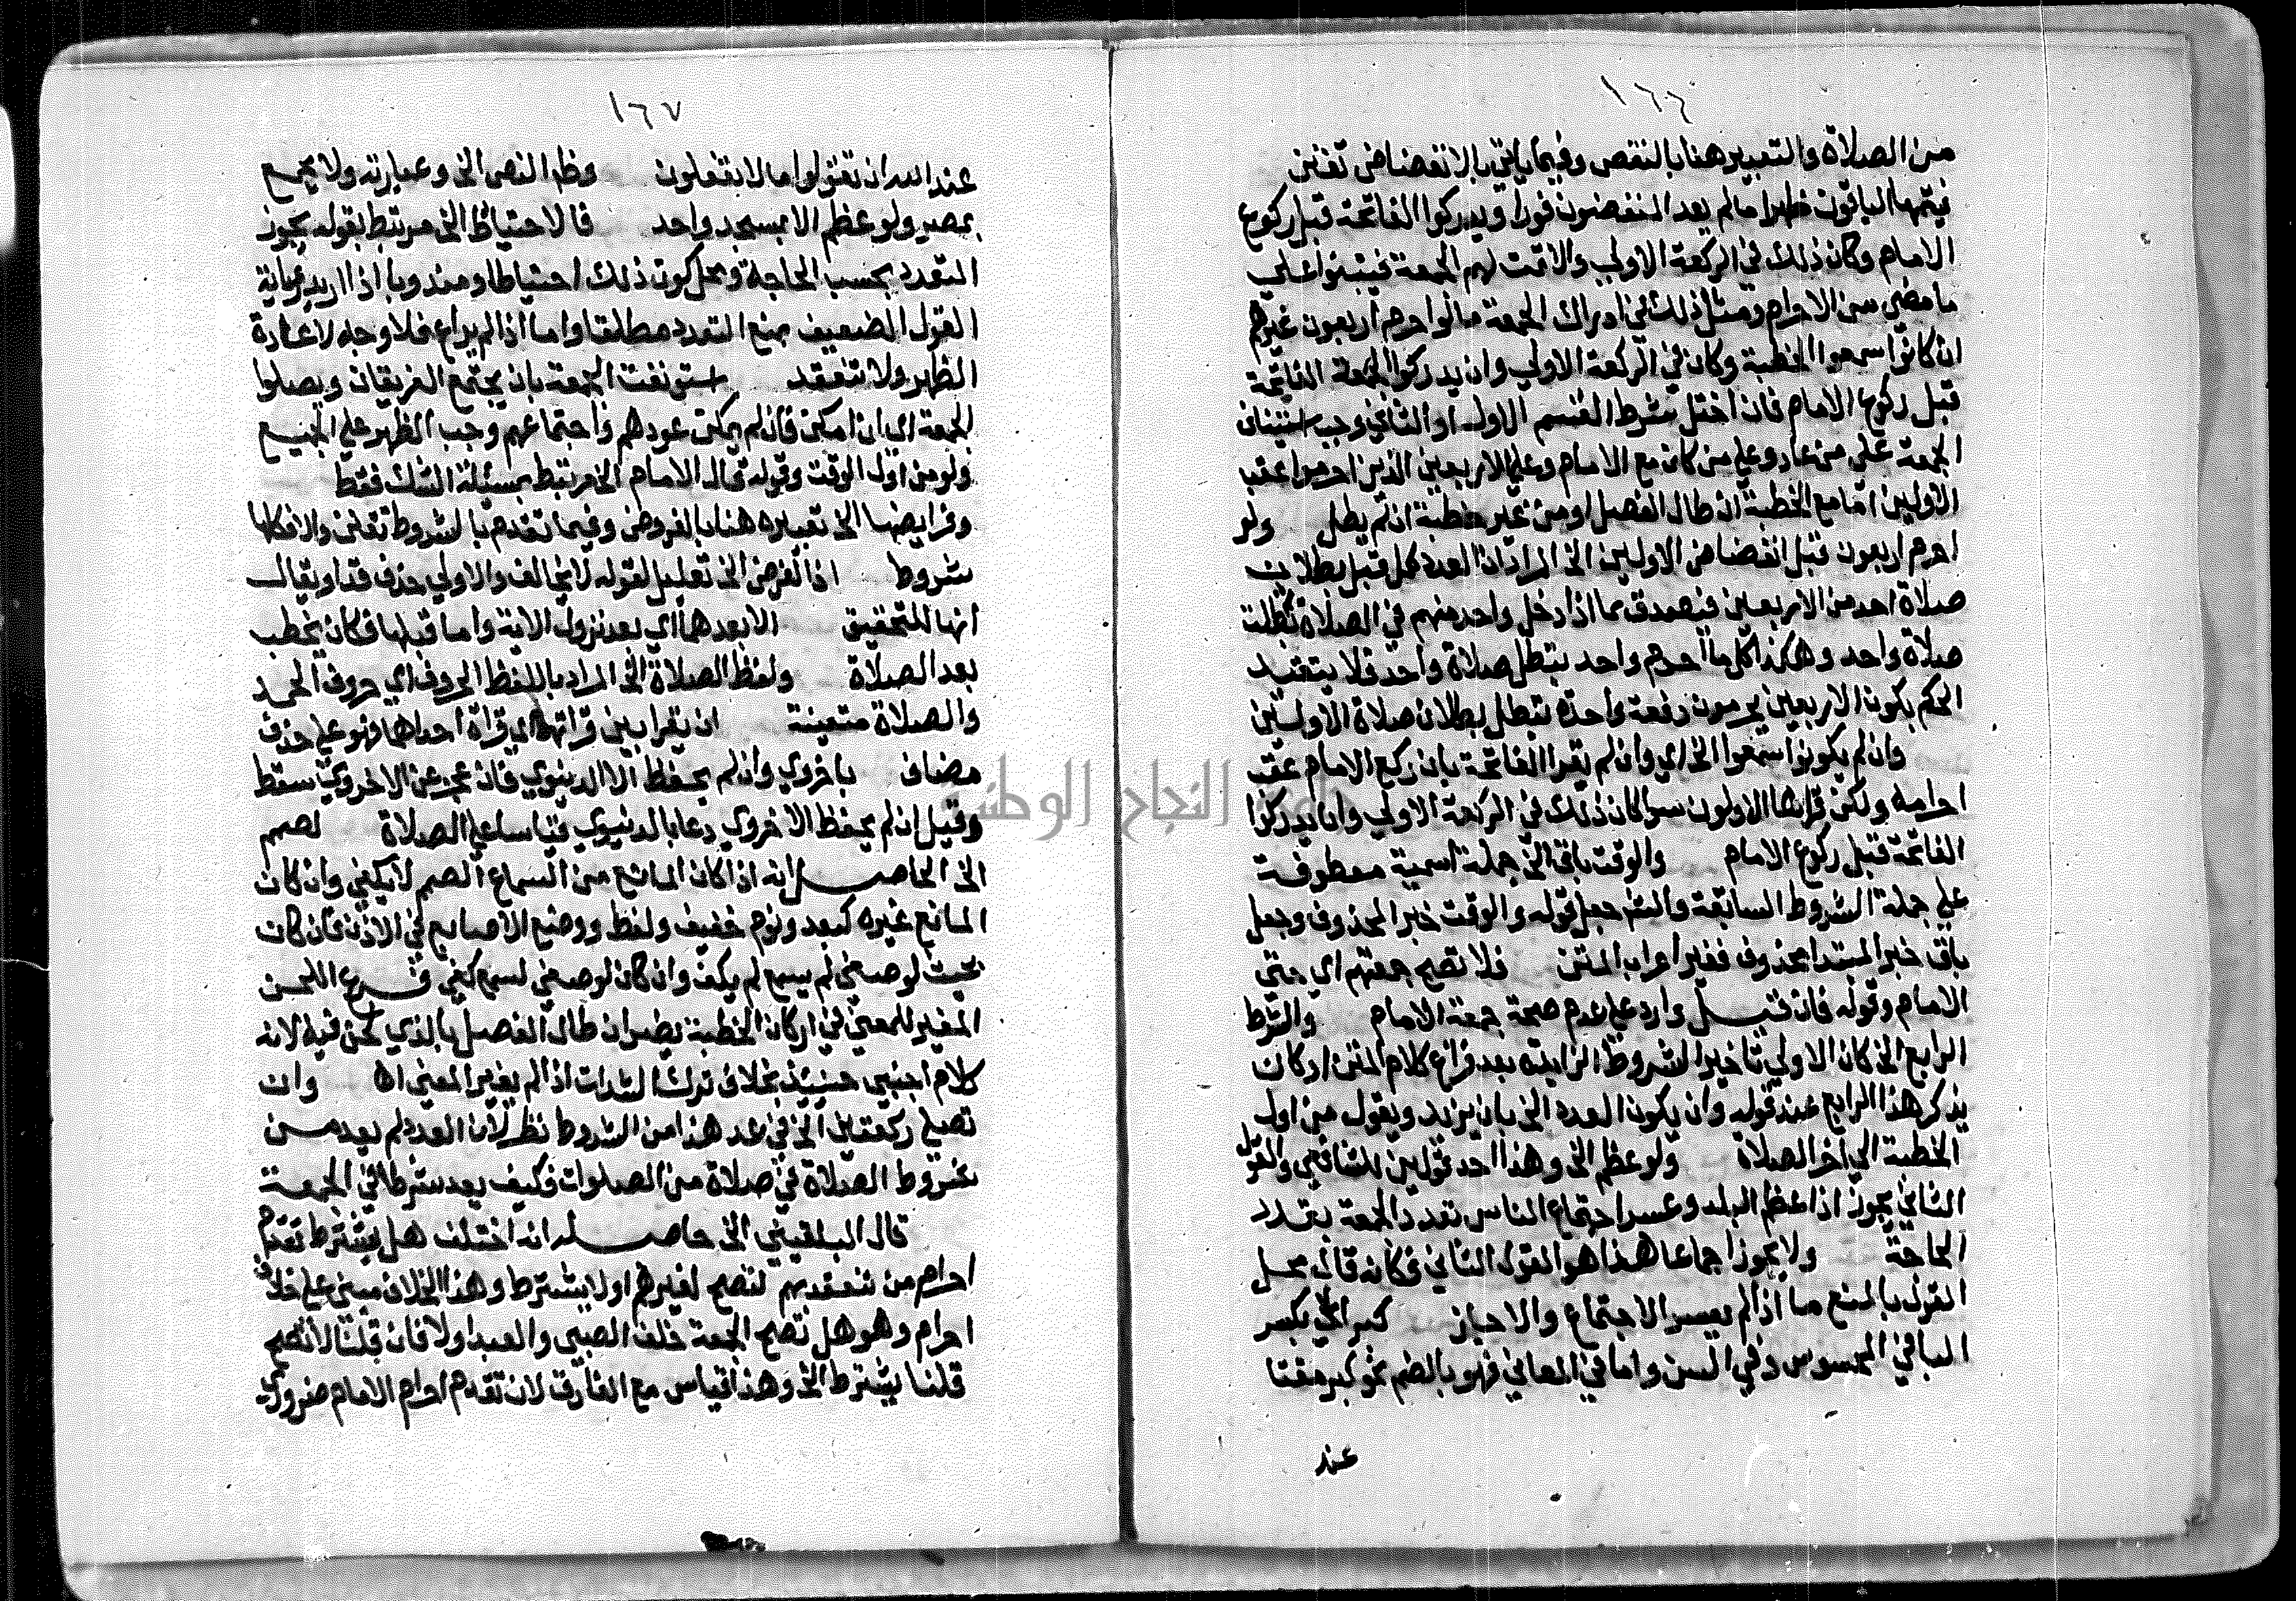 ١٦٦
من الصلاة والتعبير هنا بالنقص وفيما ياتي بالانفضاض تفنن
فيتمها الباقون ظهرا مالم يعد المنفضون فورا ويدركوا الفاتحة قبل ركوع
الامام وكان ذلك في الركعة الاولي والاتمت لهم الجمعة فيبنوا على
ما مضى من الاحرام ومثل ذلك في ادراك الجمعة مالو احرم اربعون غيرهم
ان كانوا سمعوا الخطبة وكان في الركعة الاولي وان يدركوا الجمعة الفاتحة
قبل ركوع الامام فان اختل شرط القسم الاول او الثاني وجب استئناف
الجمعة على من عاد وعلي من كان مع الامام وعلي الاربعين الذين احرموا عقب
الاولين امامع الخطبة ان طال الفصل او من غير خطبة ان لم يطل ولو
احرم اربعون قبل انفضاض الاولين الخ المراد ان العدد كمل قبل بطلان
صلاة احد من الاربعين فتصدق بما اذا دخل واحد منهم في الصلاة بطلت
صلاة واحد وهكذا كلما احرم واحد بتبطل صلاة واحد فلا يتقيد
الحكم بكون الاربعين يحرمون دفعة واحدة تبطل بطلان صلاة الاولين
وان لم يكونوا سمعوا الخ اي وان لم يقرا الفاتحة بان ركع الامام عقب
احرامه ولكن قراها الاولون سوا كان ذلك في الركعة الاولي واما يدركوا
الفاتحة قبل ركوع الامام والوقت باق الخ جملة اسمية معطوفة
علي جملة الشروط السابقة والشر جعل قوله والوقت خبر المحذوف وجعل
باق خبر المبتدا محذوف فغير اعراب المتن فلا تصح جمعتهم اي حتى
الامام وقوله فان قيل وارد علي عدم صحة جمعة الامام والشرط
الرابع الخ كان الاولي تاخير الشروط الزايدة بعد فراغ كلام المتن او كان
يذكر هذا الرابع عند قوله وان يكون العدد الخ بان يزيد ويقول من اول
الخطبة الي اخر الصلاة ولو عظم الخ وهذا احد قولين للشافعي والقول
الثاني يجوز اذا عظم البلد وعسر اجتماع الناس تعدد الجمعة بتعدد
الحاجة ولا يجوز اجماعا هذا هو القول الثاني فكانه قال محل
القول بالمنع ما اذا لم يعسر الاجتماع والا جاز كبر اي بكسر
البا في المحسوس وفي السن واما في المعاني فهو بالضم نحو كبر مقتا
عند
١٦٧
عند الله ان تقولوا ما لا تفعلون وظ النص الخ وعبارته ولا يجمع
بمصر ولو عظم الا بمسجد واحد فالاحتياط الخ مرتبط بقوله يجوز
التعدد بحسب الحاجة ومحل كون ذلك احتياطا ومندوبا اذا اريد رعاية
القول الضعيف بمنع التعدد مطلقا واما اذا لم يراع فلا وجه لاعادة
الظهر ولا تنعقد استونفت الجمعة بان يجتمع الفريقان ويصلوا
الجمعة اي ان امكن فان لم يمكن عودهم واجتماعهم وجب الظهر علي الجميع
ولو من اول الوقت وقوله قال الامام الخ مرتبط بمسئلة الشك فقط
وفرايضها الخ تعبيره هنا بالفروض وفيما تقدم بالشروط تفنن والا فكلها
شروط اذا الفرض الخ تعليل لقوله لا يخالف والاولي حذف قد او يقال
انها للتحقيق الا بعدها اي بعد نزول الاية واما قبلها فكان يخطب
بعد الصلاة ولفظ الصلاة الخ المراد باللفظ الحروف اي حروف الحمد
والصلاة متعينة ان يقرا بين قراتهما اي قراة احداهما فهو علي حذف
مضاف باخروي وان لم يحفظ الا الدنيوي فان عجز عن الاخروي سقط
وقيل ان لم يحفظ الاخروي دعا بالدنيوي قياسا علي الصلاة لصمم
الخ الحاصل انه اذا كان المانع من السماع الصمم لا يكفي وان كان
المانع غيره كبعد ونوم خفيف ولغط ووضع الاصابع في الاذن فان كان
بحيث لو صغى لم يسمع لم يكف وان كان لو صغى لسمع كفى فرع اللحن
المغير للمعنى في اركان الخطبة يضر ان طال الفصل بالذي لحن فيه لانه
كلام اجنبي حينيذ بخلاف ترك الشدات اذا لم يغير المعنى اه وان
تصلي ركعتان الخ في عد هذا من الشروط نظر لان العدد لم يعد من
شروط الصلاة في صلاة من الصلوات فكيف يعد شرطا في الجمعة
قال البلقيني الخ حاصله انه اختلف هل يشترط تقدم
احرام من تنعقد بهم لتصح لغيرهم او لا يشترط وهذا الخلاف مبني علي خلاف
احرام وهو هل تصح الجمعة خلف الصبي والعبد او لا فان قلنا لا تصح
قلنا يشترط الخ وهذا قياس مع الفارق لان تقدم احرام الامام ضروري
جامعة النجاح الوطنية